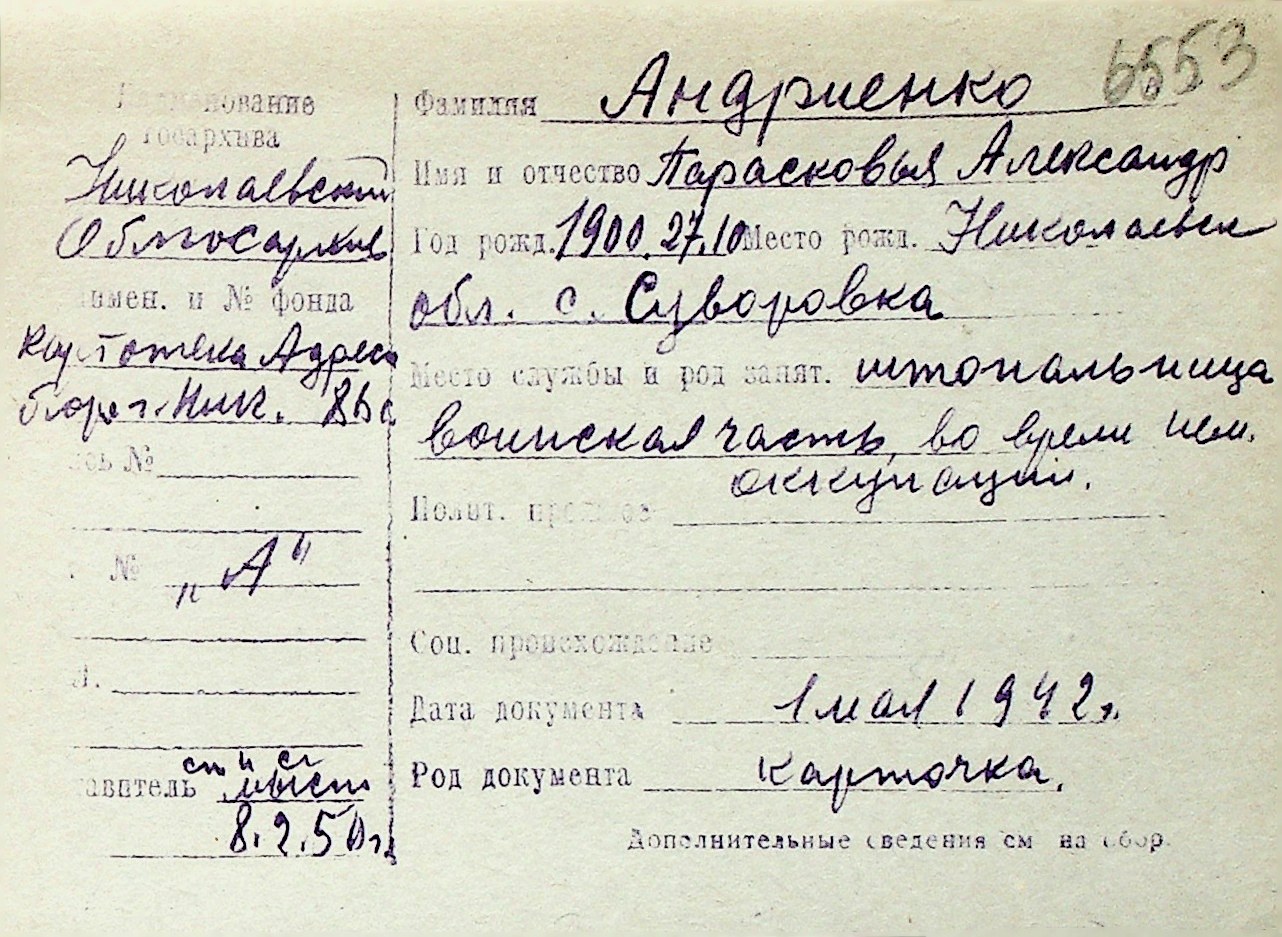 6553
Наименование
Госархива
Николаевский
Облгосархив
Наимен. и № фонда
Картотека Адресн
бюро г. Ник.
№
№ „А"
ставитель
8.2.50 г.
Фамилия Андриенко
Имя и отчество Парасковья Александр
Год рожд. 1900.27.10 Место рожд. Николаевск
обл. с. Суворовка
Место службы и род занят. штопальница
воинская часть, во время нем.
оккупации.
Полит. прошлое
Соц. происхождение
Дата документа 1 мая 1942 г.
Род документа карточка.
Дополнительные сведения см на обор.